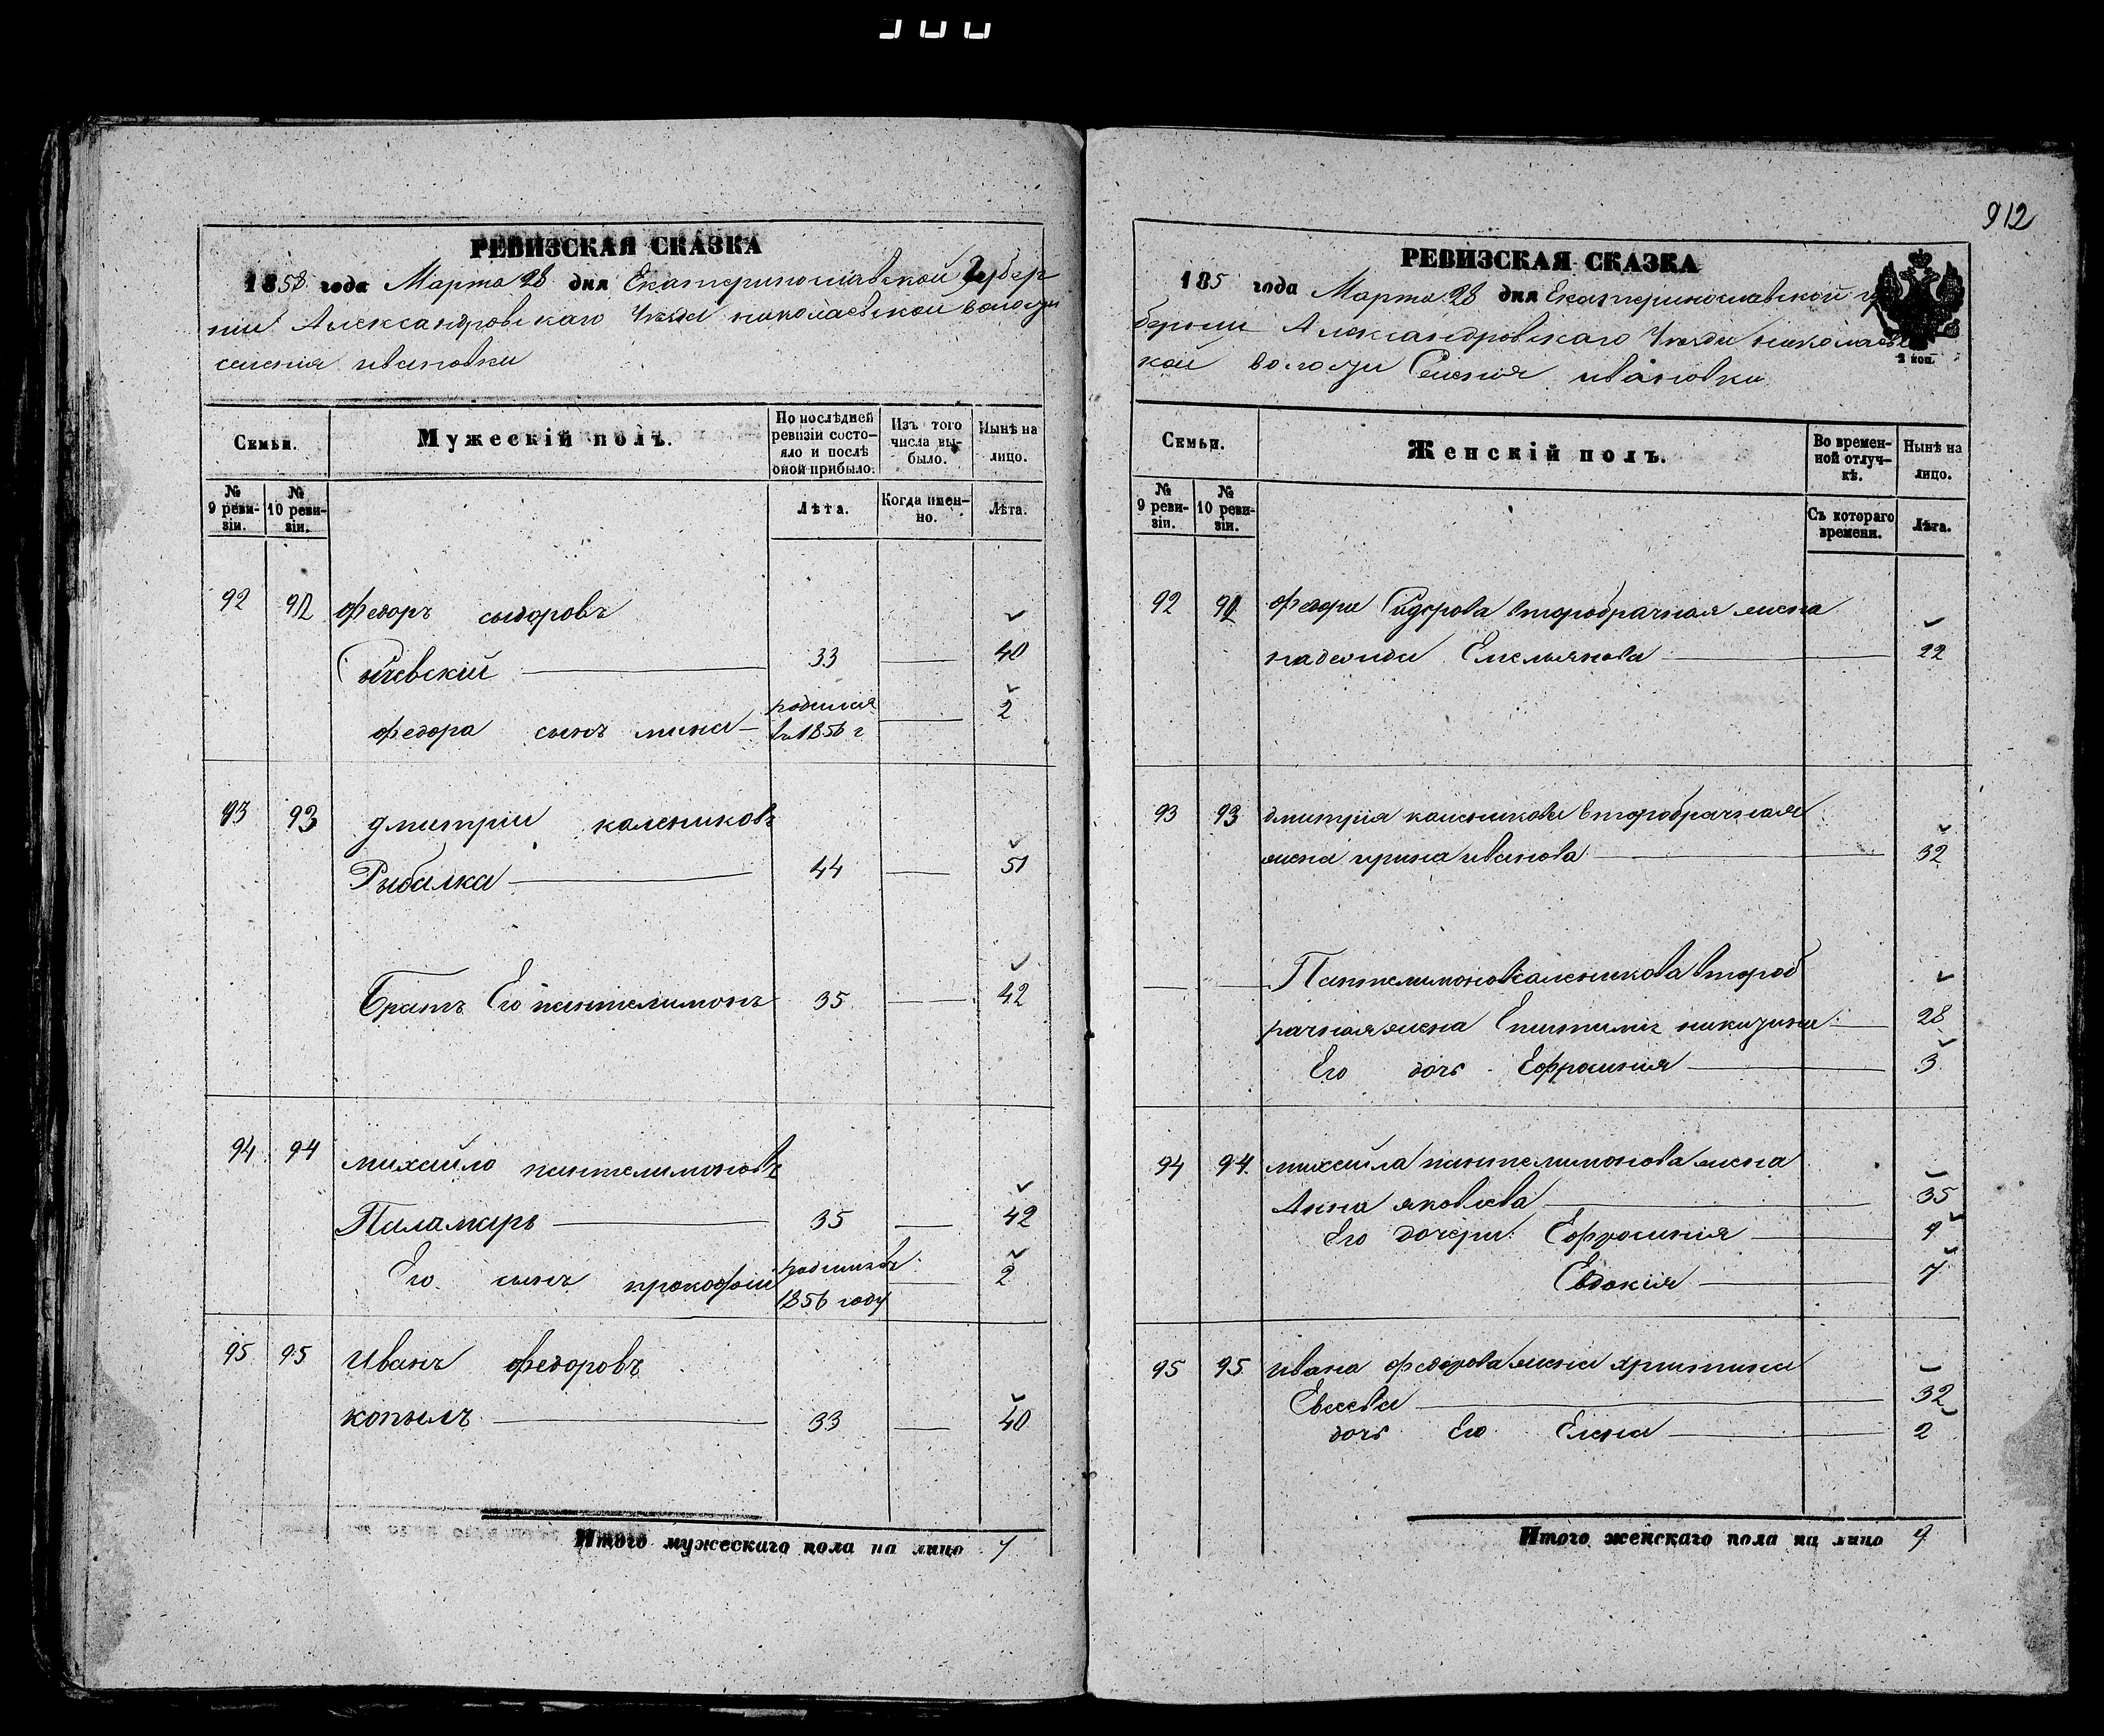 912
РЕВИЗСКАЯ СКАЗКА
1858 года Марта 28 дня Екатеринославской Губер
нии Александровскаго Уезда николаевской волости
селения ивановки
Семьи.
Мужескій полъ.
По послѣдней ревизіи состо-яло и послѣ оной прибыло.
Изъ того числа вы-было.
Нынѣ на лицо.
№ 9 реви-зіи.
№ 10 реви-зіи.
Лѣта.
Когда имен-но.
Лѣта.
92 92 федоръ сыдоровъ
33 40
федора сынъ мина родился въ 1856 г 2
93 93 дмитрии калениковъ
Рыбалка 44 51
Братъ Его пантелимонъ 35 42
94 94 михайло пантелимоновъ
Паламарь 35 42
Его сынъ прокофии родился въ 1856 году 2
95 95 иванъ федоровъ
копылъ 33 40
Итого мужескаго пола на лицо 7
РЕВИЗСКАЯ СКАЗКА
185 года Марта 28 дня Екатеринославской гу
бернии Александровскаго Уезда николаевс
кой волости Селения ивановки
Семьи.
Женскій полъ.
Во времен-ной отлуч-кѣ.
Нынѣ на лицо.
№ 9 реви-зіи.
№ 10 реви-зіи.
Съ котораго времени.
Лѣта.
92 92 федора Сидорова второбрачная жена
надежда Емельянова 22
93 93 дмитрия каленикова второбрачная
жена ирина иванова 32
Пантелимона каленикова второб
рачная жена никитина 28
Его дочь Ефросиния 3
94 94 михайла пантелимонова жена
Анна яковлева 35
Его дочери Ефросиния 9
Евдокия 7
95 95 ивана федорова жена христина
Евсева 32
дочь Его Елена 2
Итого женскаго пола на лицо 9